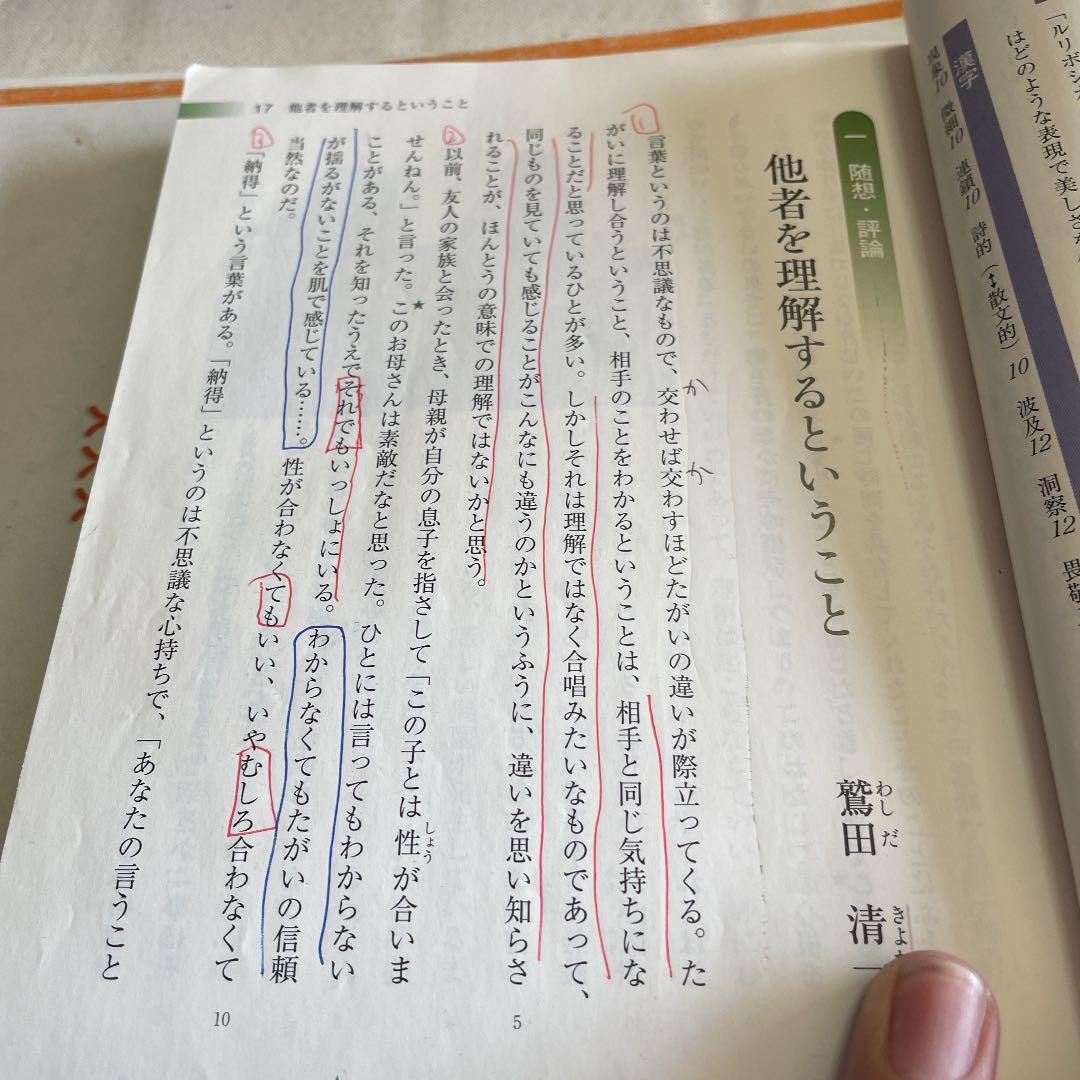 「ルリボシカ
はどのような表現で美しさ
漢字
現象10 微細10 連鎖10 詩的(↔散文的)10 波及12 洞察12 畏敬
17 他者を理解するということ
一 随想・評論
他者を理解するということ
鷲田 清一
わしだ きよか
① 言葉というのは不思議なもので、交わせば交わすほどたがいの違いが際立ってくる。た
か か
がいに理解し合うということ、相手のことをわかるということは、相手と同じ気持ちにな
ることだと思っているひとが多い。しかしそれは理解ではなく合唱みたいなものであって、
同じものを見ていても感じることがこんなにも違うのかというふうに、違いを思い知らさ
れることが、ほんとうの意味での理解ではないかと思う。
5
② 以前、友人の家族と会ったとき、母親が自分の息子を指さして「この子とは性が合いま
しょう
せんねん。」と言った。★このお母さんは素敵だなと思った。ひとには言ってもわからない
ことがある、それを知ったうえでそれでもいっしょにいる。わからなくてもたがいの信頼
が揺るがないことを肌で感じている……。性が合わなくてもいい、いやむしろ合わなくて
当然なのだ。
10
③ 「納得」という言葉がある。「納得」というのは不思議な心持ちで、「あなたの言うこと